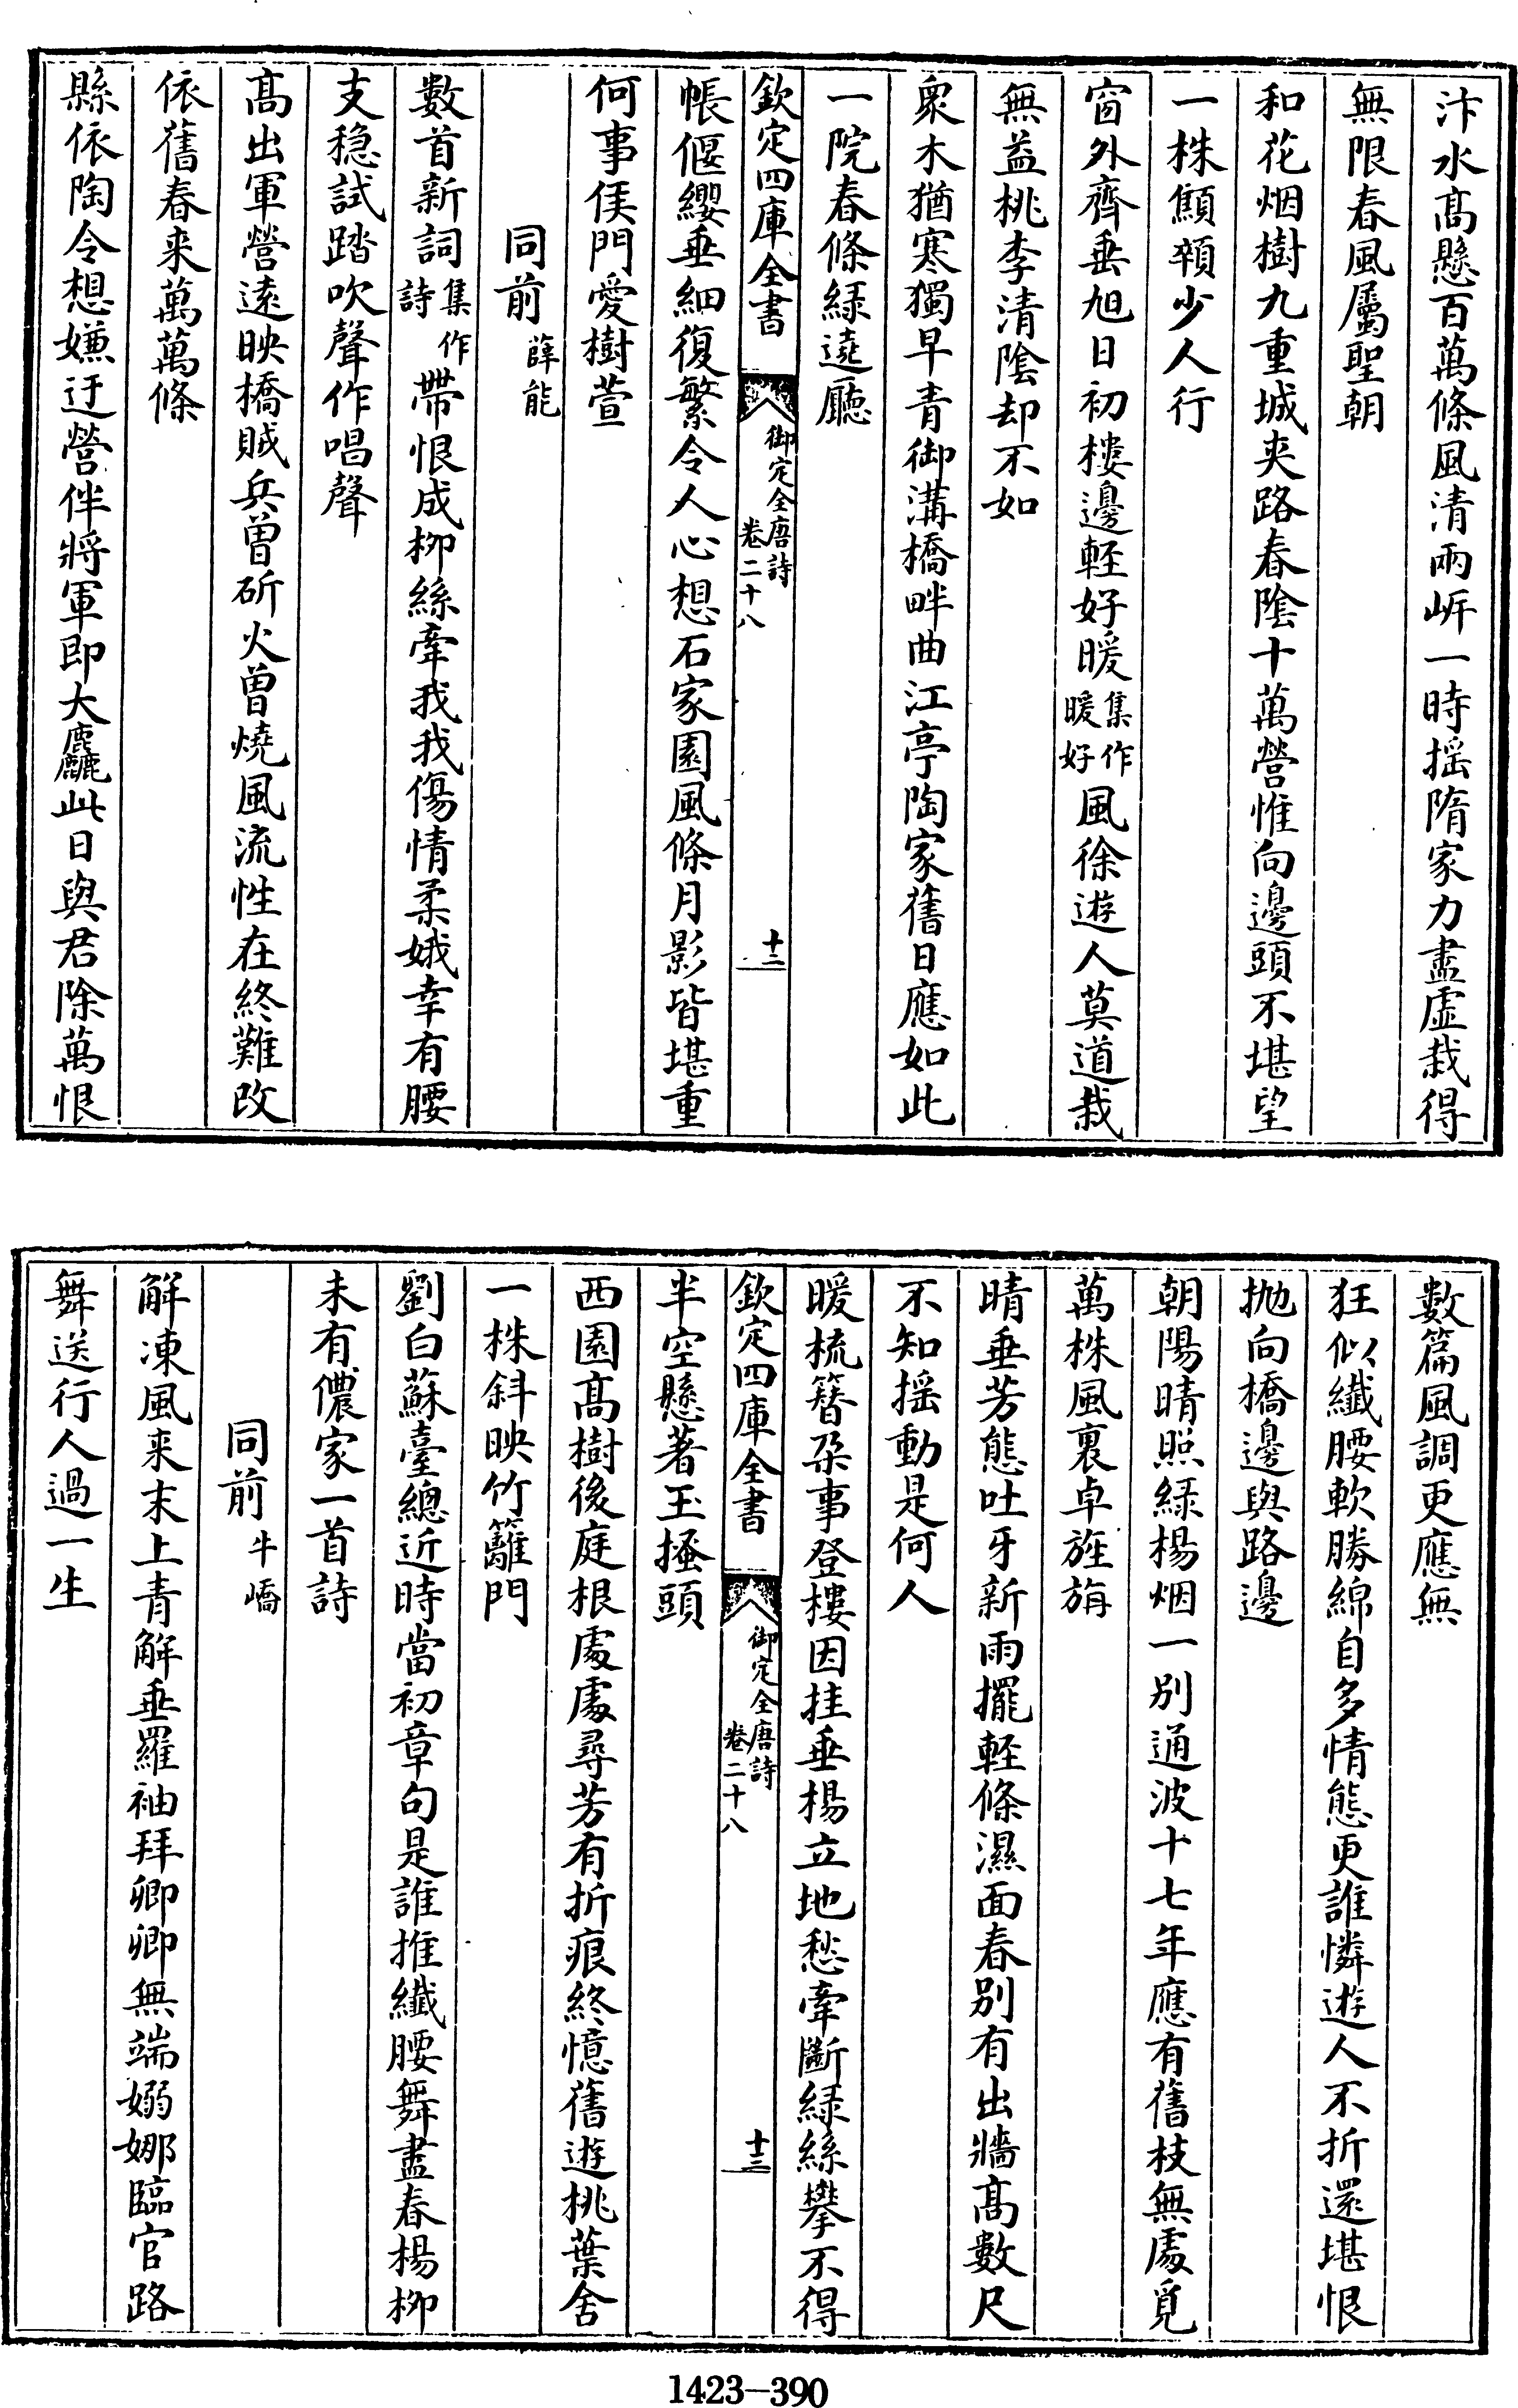 汴水髙懸百萬條風清兩岍一時揺隋家力盡虛栽得
無限春風屬聖朝
和花烟樹九重城夾路春隂十萬營惟向邊頭不堪望
一株顦顇少人行
窗外齊垂旭日初樓邊軽好暖集作暖好風徐逰人莫道栽
無益桃李清隂却不如
衆木猶寒獨早青御溝橋畔曲江亭陶家舊日應如此
一院春條緑遶廳
欽定四庫全書
御定全唐詩
卷二十八
十二
帳偃纓垂細復繁令人心想石家園風條月影皆堪重
何事侯門愛樹萱
同前 薛能
數首新詞集作詩帶恨成柳絲牽我我傷情柔娥幸有腰
支穏試踏吹聲作唱聲
髙出軍營逺映橋賊兵曾斫火曾燒風流性在終難改
依舊春来萬萬條
縣依陶令想嫌迂營伴將軍即大麤此日與君除萬恨
數篇風調更應無
狂似纎腰軟勝綿自多情態更誰憐逰人不折還堪恨
抛向橋邊與路邊
朝陽晴照緑楊烟一别通波十七年應有舊枝無處覓
萬株風裏卓旌旃
晴垂芳態吐牙新雨擺軽條濕面春别有出牆髙數尺
不知揺動是何人
暖梳簪朶事登樓因挂垂楊立地愁牽斷緑絲攀不得
欽定四庫全書
御定全唐詩
卷二十八
十三
半空懸著玉搔頭
西園髙樹後庭根處處尋芳有折痕終憶舊逰桃葉舍
一株斜映竹籬門
劉白蘇臺總近時當初章句是誰推纎腰舞盡春楊柳
未有儂家一首詩
同前 牛嶠
解凍風来末上青解垂羅袖拜卿卿無端嫋娜臨官路
舞送行人過一生
1423—390